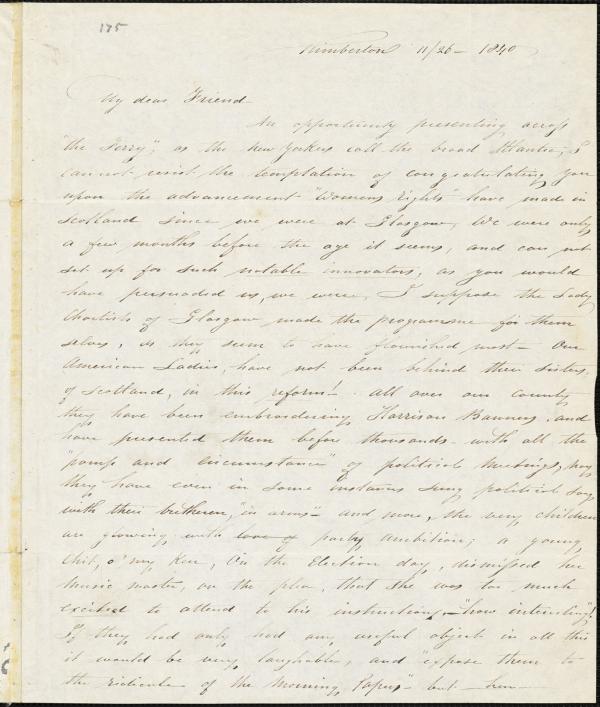 175
Kimberton 11/26 - 1840
My dear Friend
An opportunity presenting across
"the Ferry", as the New Yorkers call the broad Atlantic, I
cannot resist the temptation of congratulating you
upon the advancement "Womens rights" have made in
Scotland since we were at Glasgow, We were only
a few months before the age it seems, and can not
set up for such notable innovators, as you would
have persuaded us, we were, I suppose the Lady
Chartists of Glasgow made the programme for them
selves, as they seem to have flourished most - Our
American Ladies, have not been behind their sisters
of Scotland, in this reform! all over our county
they have been embroidering Harrison Banners, and
have presented them before thousands - with all the
"pomp and circumstance" of political meetings, nay
they have even in some instances sung political songs
with their bretheren, "in arms" - and more, the very children
are glowing with love of party ambition; a young
chit, o' my ken, on the Election day, dismissed her
music master, on the plea, that she was too much
excited to attend to his instructions, - "how interesting"!
If they had only had any useful object in all this
it would be very laughable, and "expose them to
the ridicule of the Morning Papers" - but